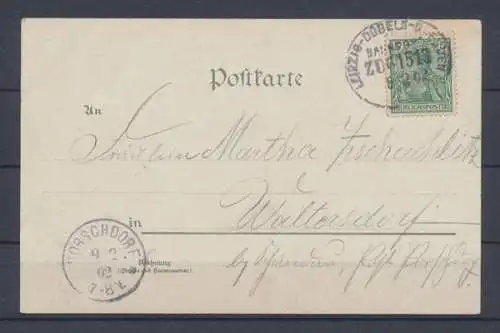 LEIPZIG-DÖBELN-DRESDEN
BAHNPOST
ZUG 1513
9 2 02
REICHSPOST
Postkarte
An
Fräulein Martha Zschachlitz
in
Waltersdorf
PORSCHDORF
9 2
02
7-8V.
Wohnung
(Straße und Hausnummer)
by Schandau, Post Porschdorf